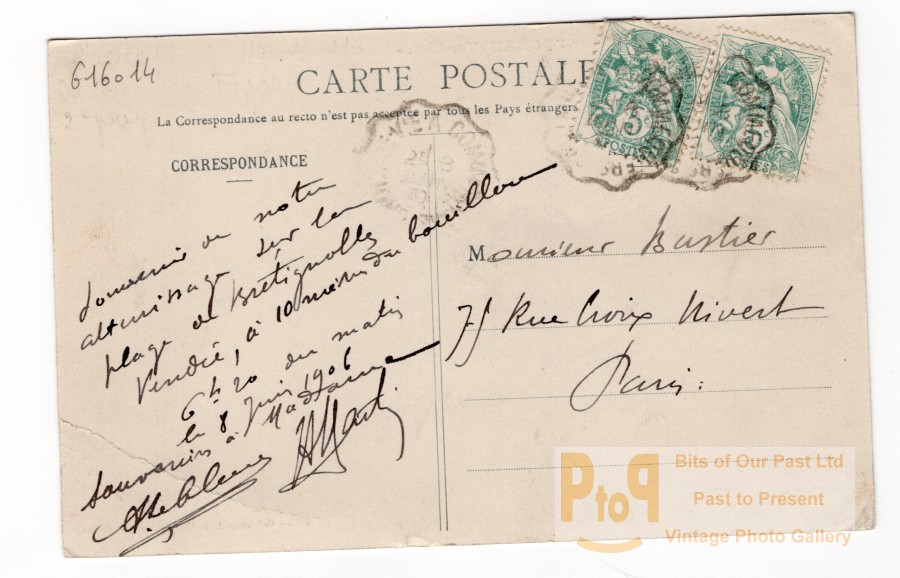 616014
CARTE POSTALE
La Correspondance au recto n'est pas acceptée par tous les Pays étrangers
CORRESPONDANCE
Souvenir de notre
atterrissage sur la
plage de Bretignolles
Vendée, à 10 mètres du bouillon
6h 20 du matin
le 8 Juin 1906
souvenirs à Madame
Leblanc
Monsieur Bastier
75 Rue Croix Nivert
Paris.
5c
POSTES
Bits of Our Past Ltd
PtoP
Past to Present
Vintage Photo Gallery